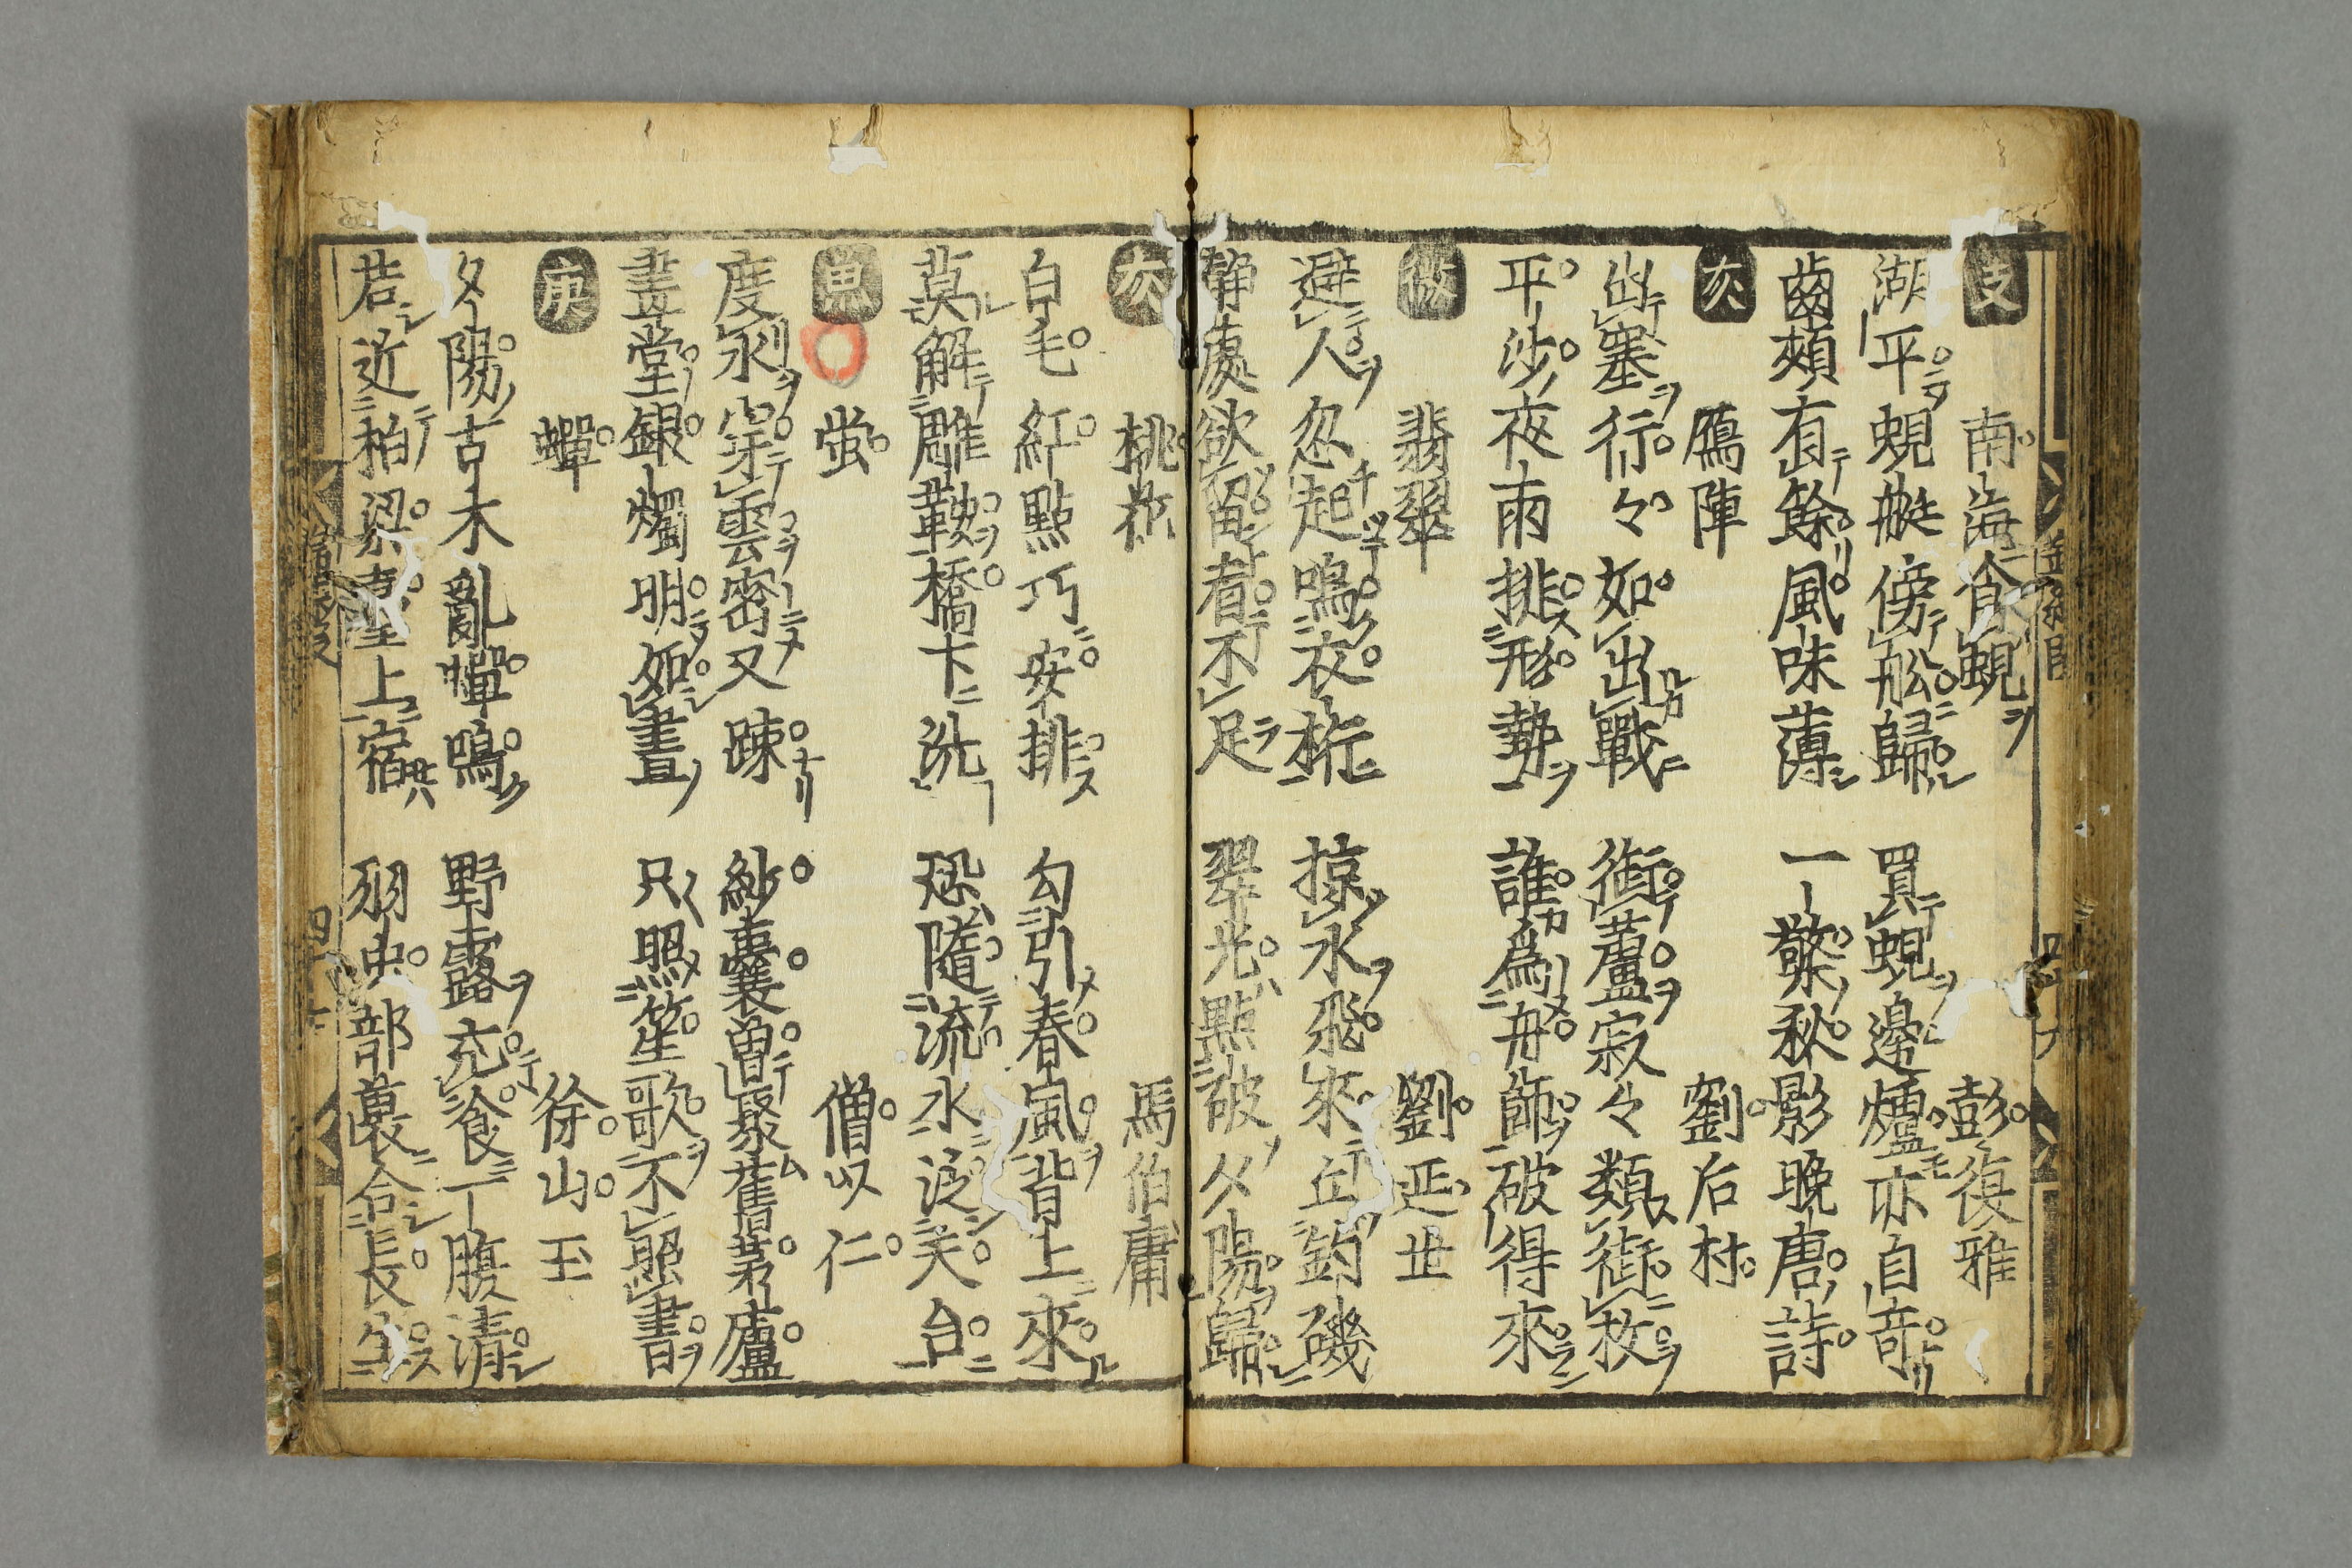 支 南海食蜆 彭復雅
湖平蜆艇傍舩歸 買蜆邊爐亦自奇
齒頰有餘風味薄 一檠秋影晩唐詩
灰 鴈陣 劉后村
出塞行々如出戰 銜蘆寂々類銜枚
平沙夜雨排形勢 誰爲舟師破得來
微 翡翠 劉延世
避人忽起鳴衣桁 掠水飛來立釣磯
静處欲留看不足 翠光點破夕陽歸
灰 桃花 馬伯庸
白毛紅點巧安排 勾引春風背上來
莫解雕鞍橋下洗 恐隨流水泛天台
魚 螢 僧以仁
度水穿雲密又踈 紗囊曽聚舊茅廬
畫堂銀燭明如晝 只照笙歌不照書
庚 蟬 徐山玉
夕陽古木亂蟬鳴 野露充飡一腹清
若近柏梁臺上宿 羽虫部裏合長生